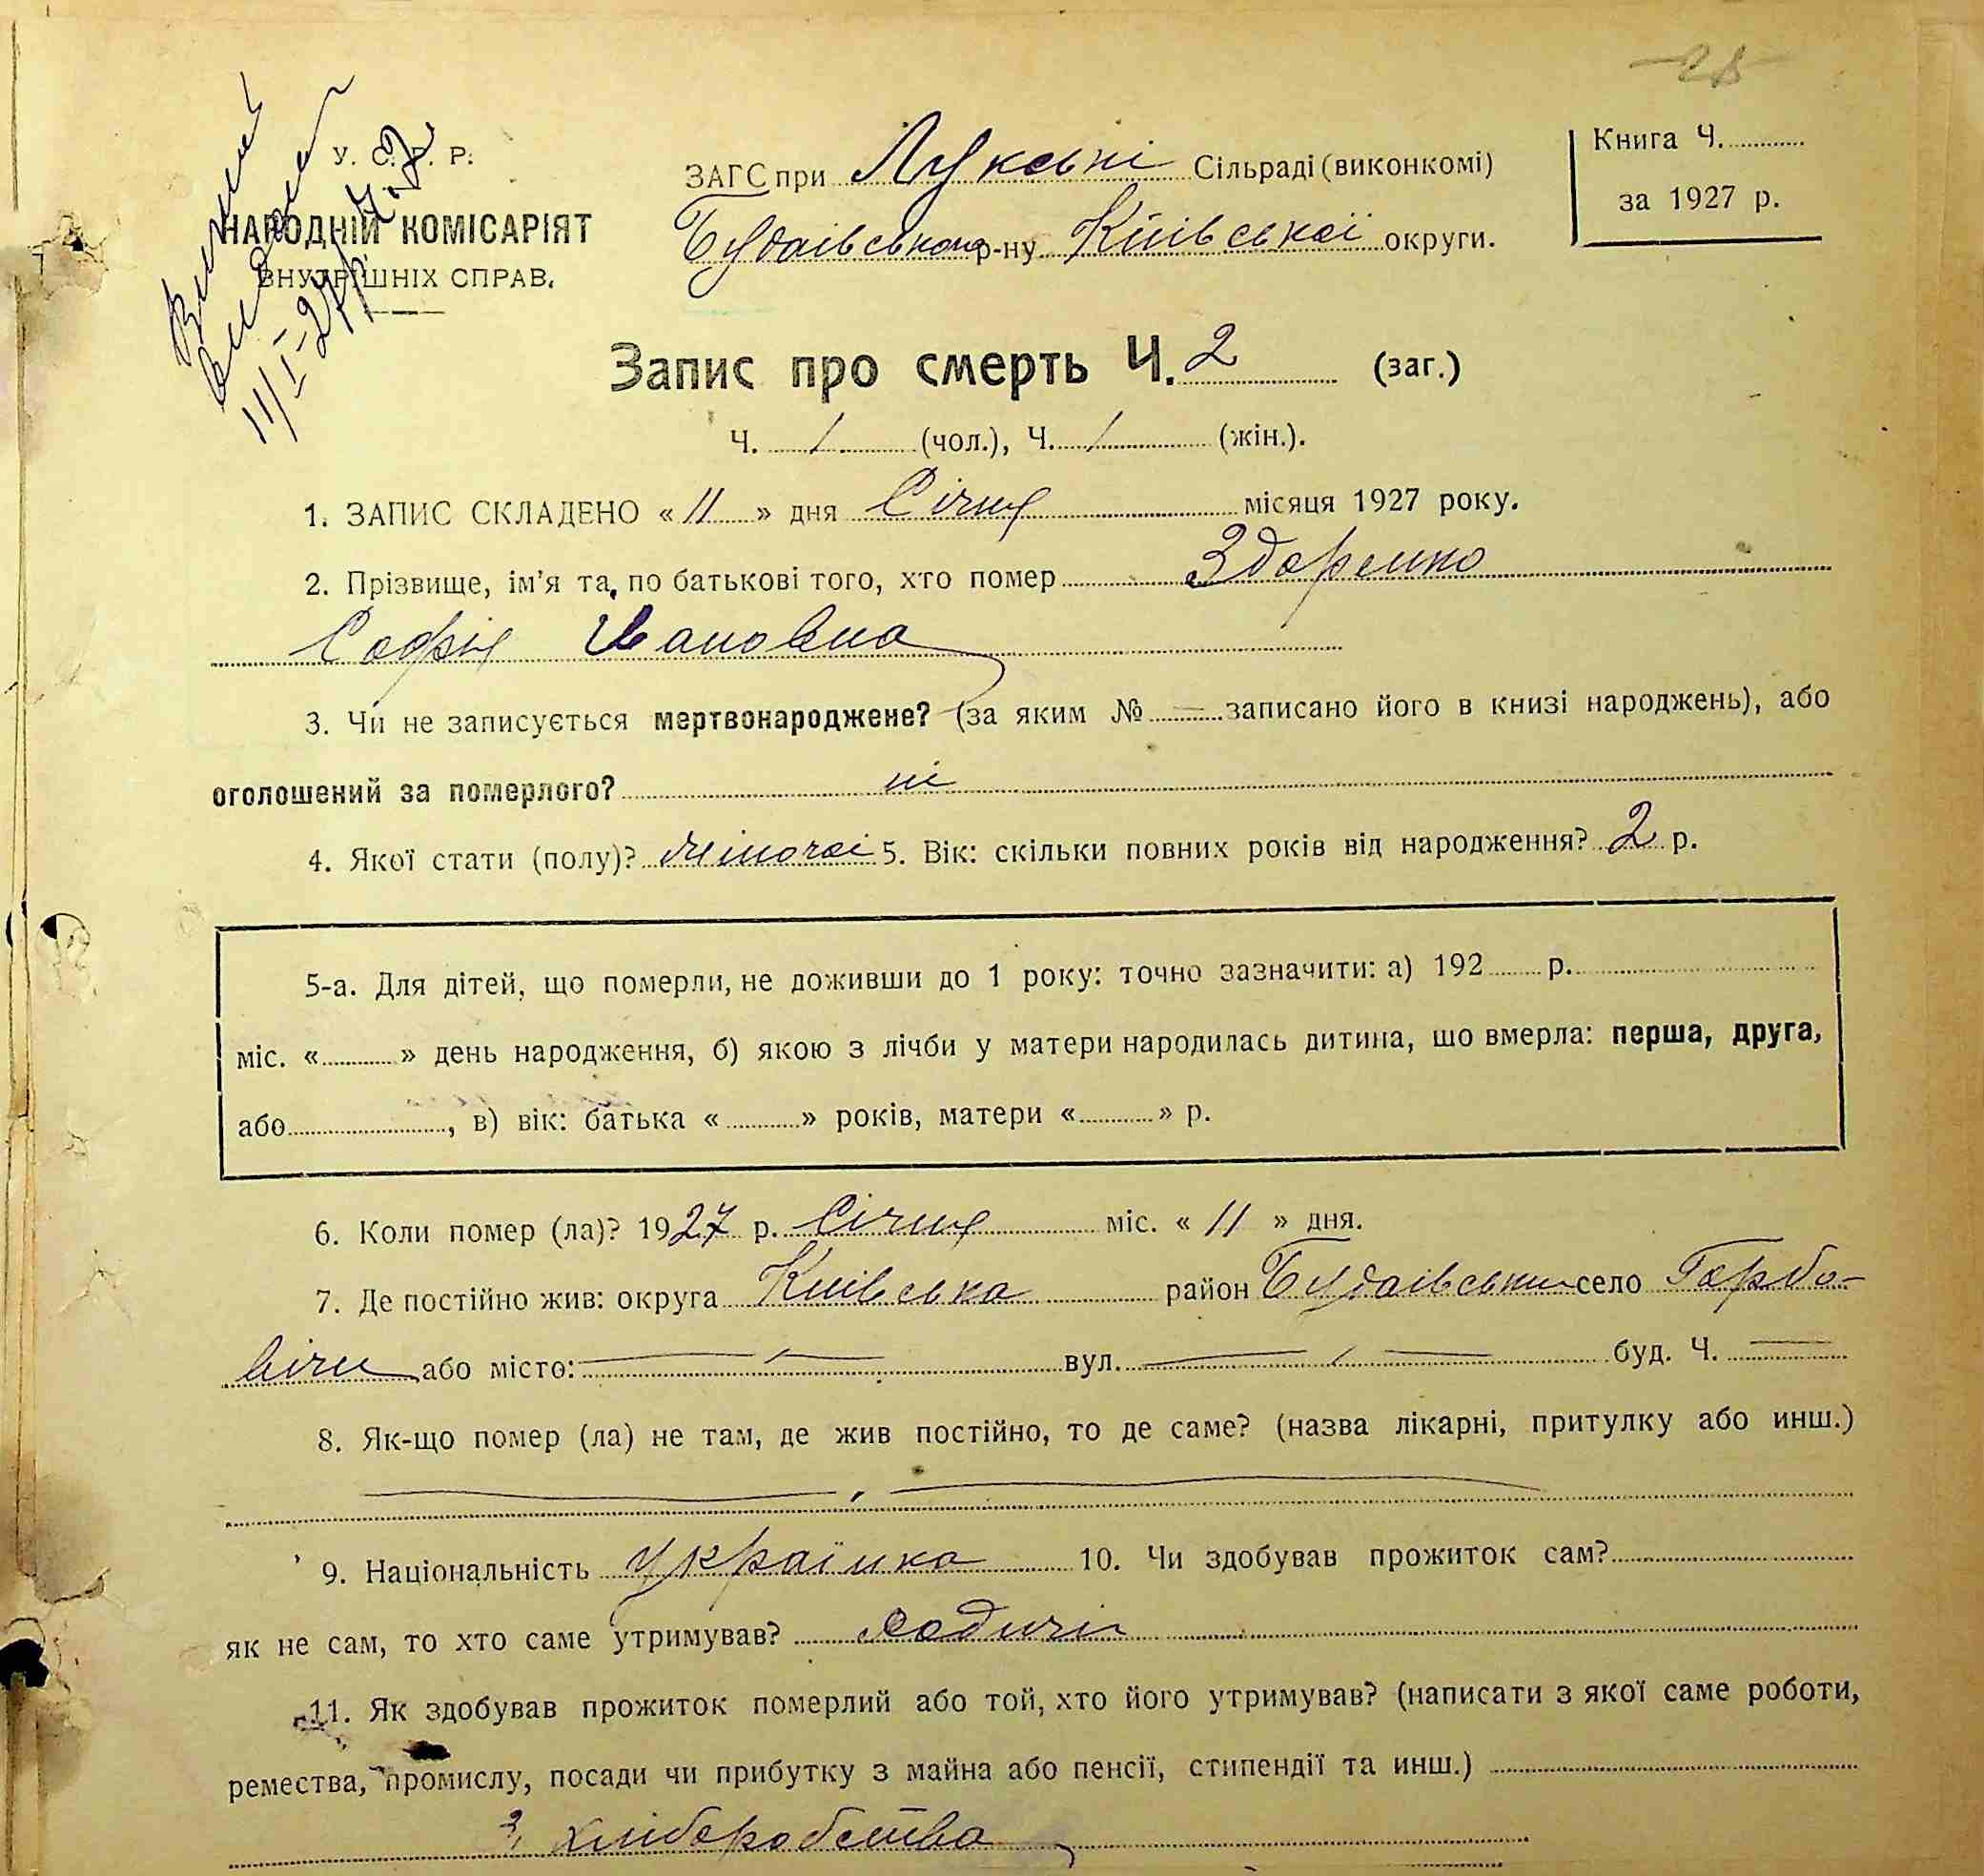 28
Книга Ч.
за 1927 р.
У. С. Р. Р.
НАРОДНІЙ КОМІСАРІЯТ
ВНУТРІШНІХ СПРАВ.
11/I-27р.
ЗАГС при Лукські Сільраді (виконкомі)
Будаівського р-ну Киівської округи.
Запис про смерть Ч. 2 (заг.)
Ч. / (чол.), Ч. / (жін.).
1. ЗАПИС СКЛАДЕНО « 11 » дня Січня місяця 1927 року.
2. Прізвище, ім'я та, по батькові того, хто помер Здоренко
Софія Ивановна
3. Чи не записується мертвонароджене? (за яким № — записано його в книзі народжень), або
оголошений за померлого? ні
4. Якої стати (полу)? жіночоі 5. Вік: скільки повних років від народження? 2 р.
5-а. Для дітей, що померли, не доживши до 1 року: точно зазначити: а) 192 р.
міс. « » день народження, б) якою з лічби у матери народилась дитина, що вмерла: перша, друга,
або , в) вік: батька « » років, матери « » р.
6. Коли помер (ла)? 1927 р. Січня міс. « 11 » дня.
7. Де постійно жив: округа Киівська район Будаівськи село Горбо-
вічи або місто: — вул. — буд. Ч. —
8. Як-що помер (ла) не там, де жив постійно, то де саме? (назва лікарні, притулку або инш.)
9. Національність Українка 10. Чи здобував прожиток сам?
як не сам, то хто саме утримував? родичі
11. Як здобував прожиток померлий або той, хто його утримував? (написати з якої саме роботи,
ремества, промислу, посади чи прибутку з майна або пенсії, стипендії та инш.)
З хліборобства